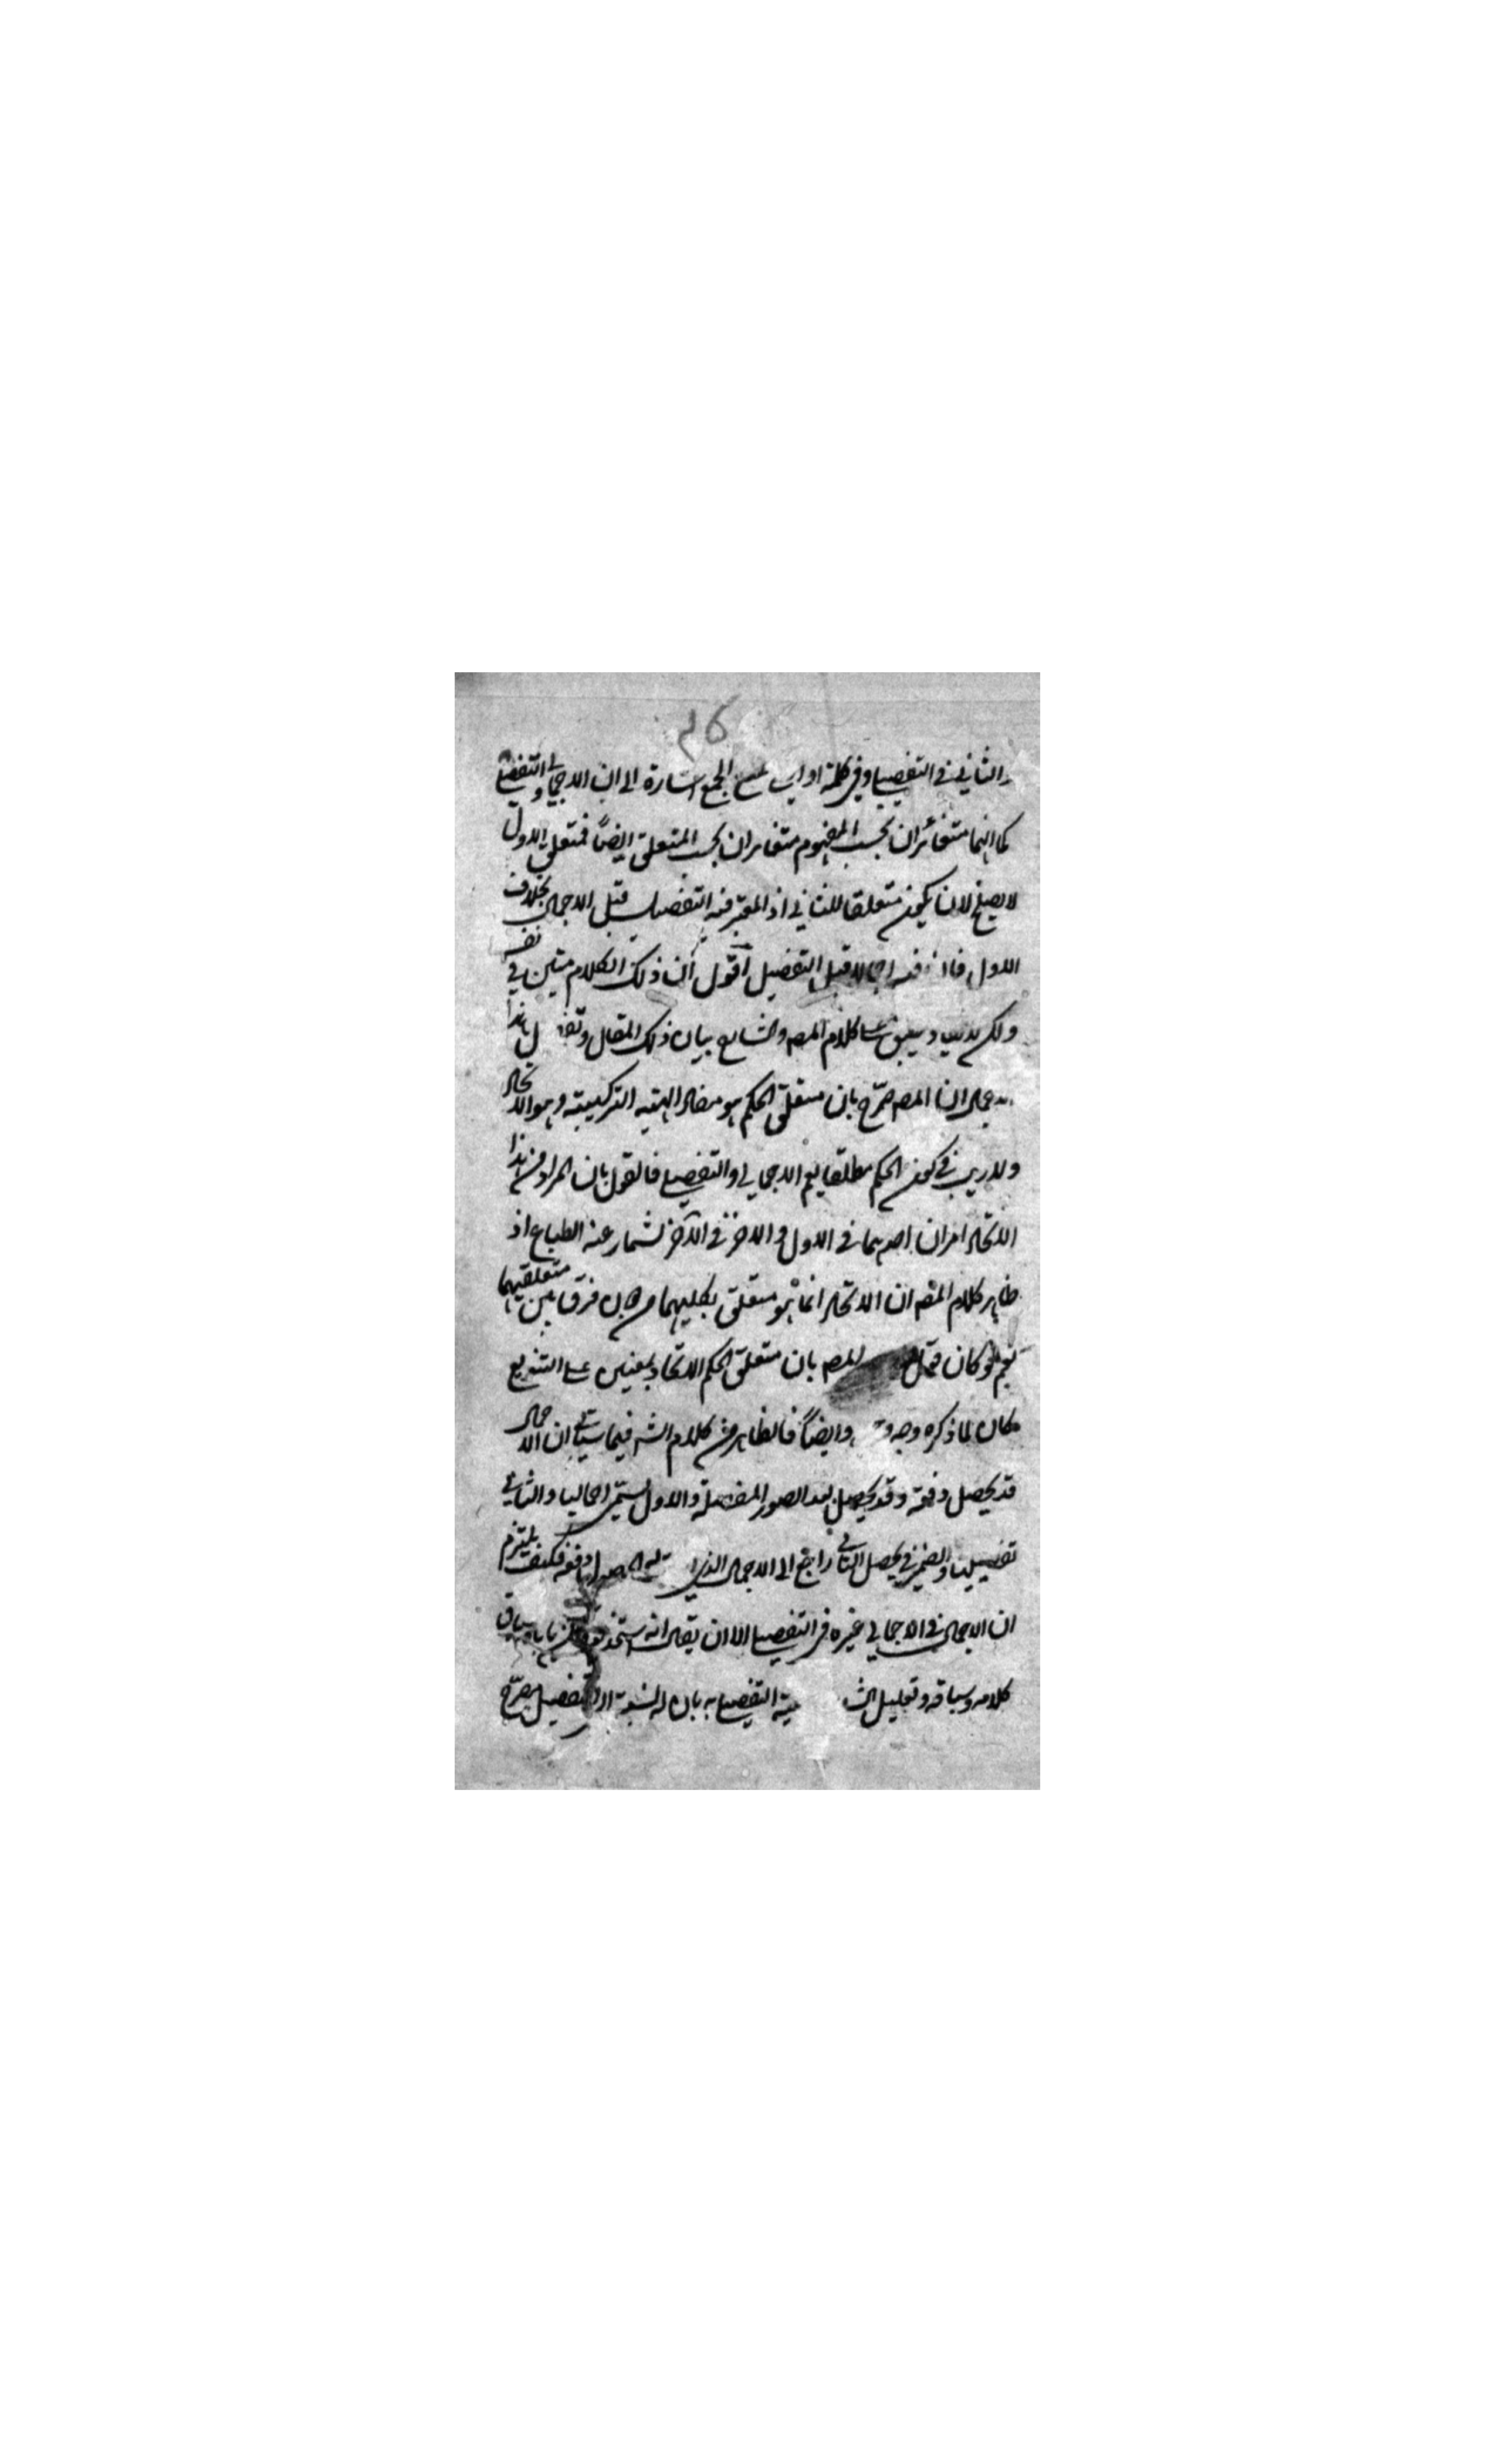 والثاني في التفصيلي وفي كلمة او التي لمنع الجمع اشارة الى ان الاجمالي والتفصيلي
كما انهما متغائران بحسب المفهوم متغايران بحسب المتعلق ايضاً فمتعلق الاول
لا يصلح لان يكون متعلقا للثاني اذ المعتبر فيه التفصيل قبل الاجمال بخلاف
الاول فان فيه اجمالا قبل التفصيل اقول ان ذلك الكلام متين في نفسه
ولكن كلام المص والشارح بيان ذلك المقال هذا
الاجمال ان المص صرّح بان متعلق الحكم هو مفاد الهيئة التركيبية وهو الاتحاد
ولا ريب في كون الحكم مطلقا يعم الاجمالي والتفصيلي فالقول بان المراد من هذا
الاتحاد امران احدهما في الاول والاخر في الآخر تشمئز عنه الطباع اذ
ظاهر كلام المص ان الاتحاد انما هو متعلق بكليهما من دون فرق بين متعلقيهما
نعم لو كان المص بان متعلق الحكم الاتحاد بمعنيين على التنويع
لكان لما ذكره وجه وايضاً فالظاهر من كلام الش فيما سيأتي ان الاجمال
قد يحصل دفعة وقد يحصل بعد الصور المفصلة والاول يسمّى اجماليا والثاني
تفصيليا والضمير في يحصل الثاني راجع الى الاجمال الذي دفعة فكيف يلتزم
ان الاجمال في الاجمالي غيره في التفصيلي الا ان يقال انه سياق
كلامه وسباقه وتعليل الش التفصيلي به بان له نسبة الى التفصيل يصرّح